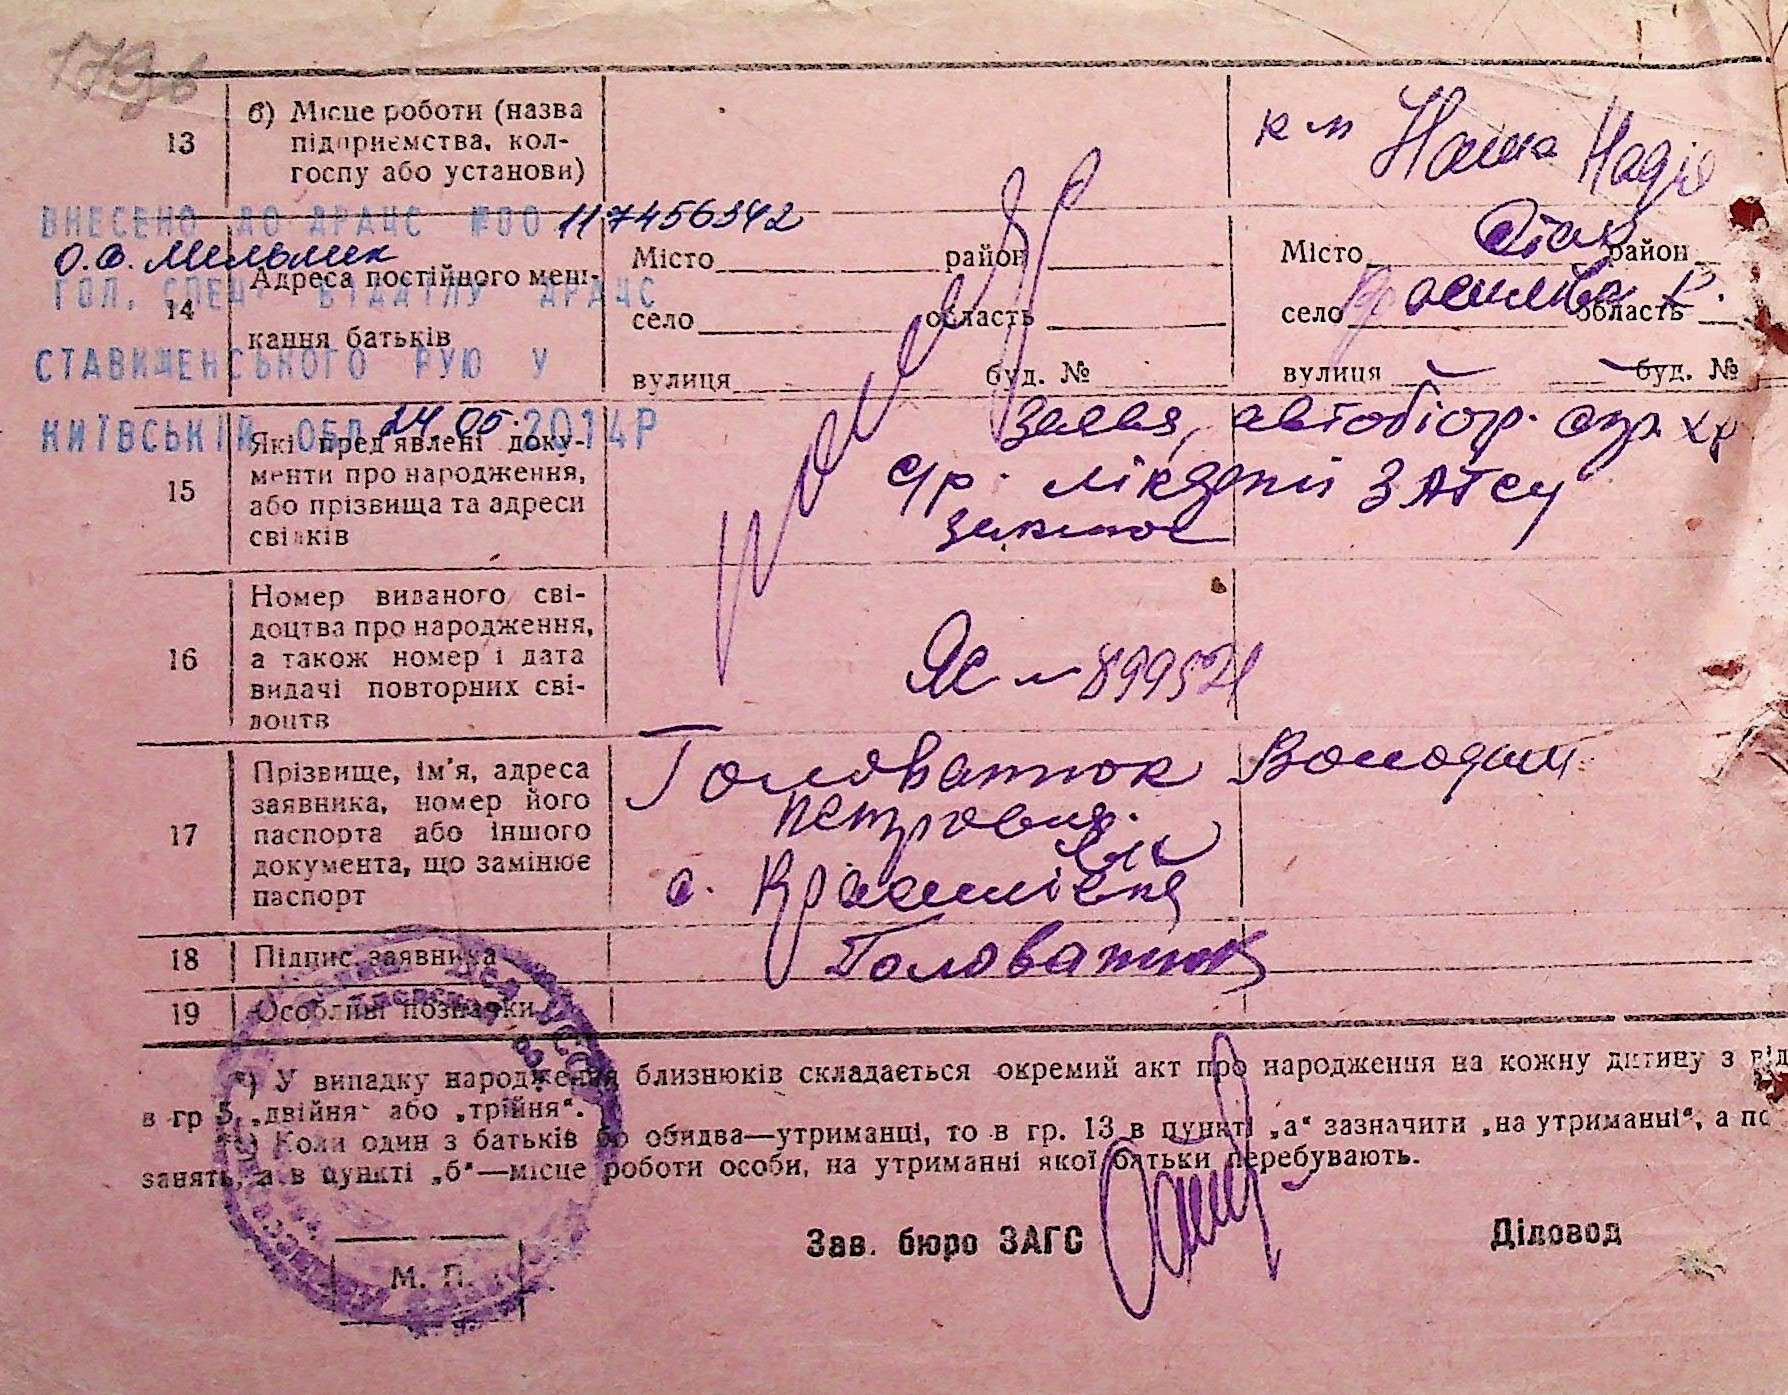 13
б) Місце роботи (назва
підприємства, кол-
госпу або установи)
Наша Надія
ВНЕСЕНО ДО ДРАЦС №00 117456342
О.В. Мельник
ГОЛ. СПЕЦ. ВІДДІЛУ ДРАЦС
СТАВИЩЕНСЬКОГО РУЮ У
КИЇВСЬКІЙ ОБЛ 24 05. 2014Р
14
Адреса постійного меш-
кання батьків
Місто район
село область
вулиця буд. №
Місто район
село область
вулиця буд. №
15
Які пред'явлені доку-
менти про народження,
або прізвища та адреси
свідків
автобіогр.
ЗАГСу
16
Номер виданого сві-
доцтва про народження,
а також номер і дата
видачі повторних сві-
доцтв
17
Прізвище, ім'я, адреса
заявника, номер його
паспорта або іншого
документа, що замінює
паспорт
Головатюк Володим
Петрович
с. Красилівка
18
Підпис заявника
Головатюк
19
Особливі позначки
*) У випадку народження близнюків складається окремий акт про народження на кожну дитину з від
в гр 5 „двійня" або „трійня".
Коли один з батьків бо обидва—утриманці, то в гр. 13 в пункті „а" зазначити „на утриманні", а по
занять, а в пункті „б"—місце роботи особи, на утриманні якої батьки перебувають.
Зав. бюро ЗАГС
Діловод
М. П.